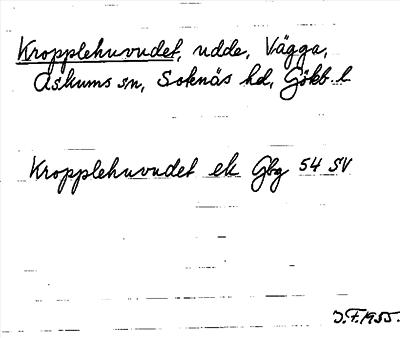 Kropplehuvudet, udde, Vägga,
Askums sn, Sotenäs hd, Gökb. l
Kropplehuvudet ek Gbg 54 SV
J.F. 1955.